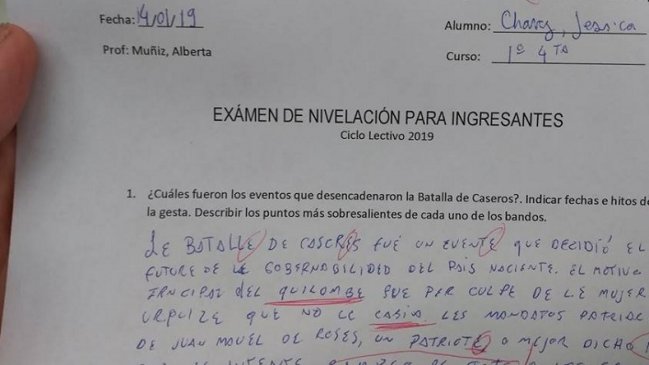 Fecha: 14/01/19
Alumno: Chavez, Jessica
Prof: Muñiz, Alberta
Curso: 1º 4TA
EXÁMEN DE NIVELACIÓN PARA INGRESANTES
Ciclo Lectivo 2019
1. ¿Cuáles fueron los eventos que desencadenaron la Batalla de Caseros?. Indicar fechas e hitos de
la gesta. Describir los puntos más sobresalientes de cada uno de los bandos.
LE BATALLE DE CASERES FUÉ UN EVENTE QUE DECIDIÓ EL
FUTURE DE LE GOBERNABILIDED DEL PAÍS NACIENTE. EL MOTIVE
PRINCIPAL DEL QUILOMBE FUE POR CULPE DE LE MUJER
URQUIZE QUE NO LE CASIA LES MANDATOS PATRIAR
DE JUAN MAUEL DE ROSES, UN PATRIOTE O MEJOR DICHO